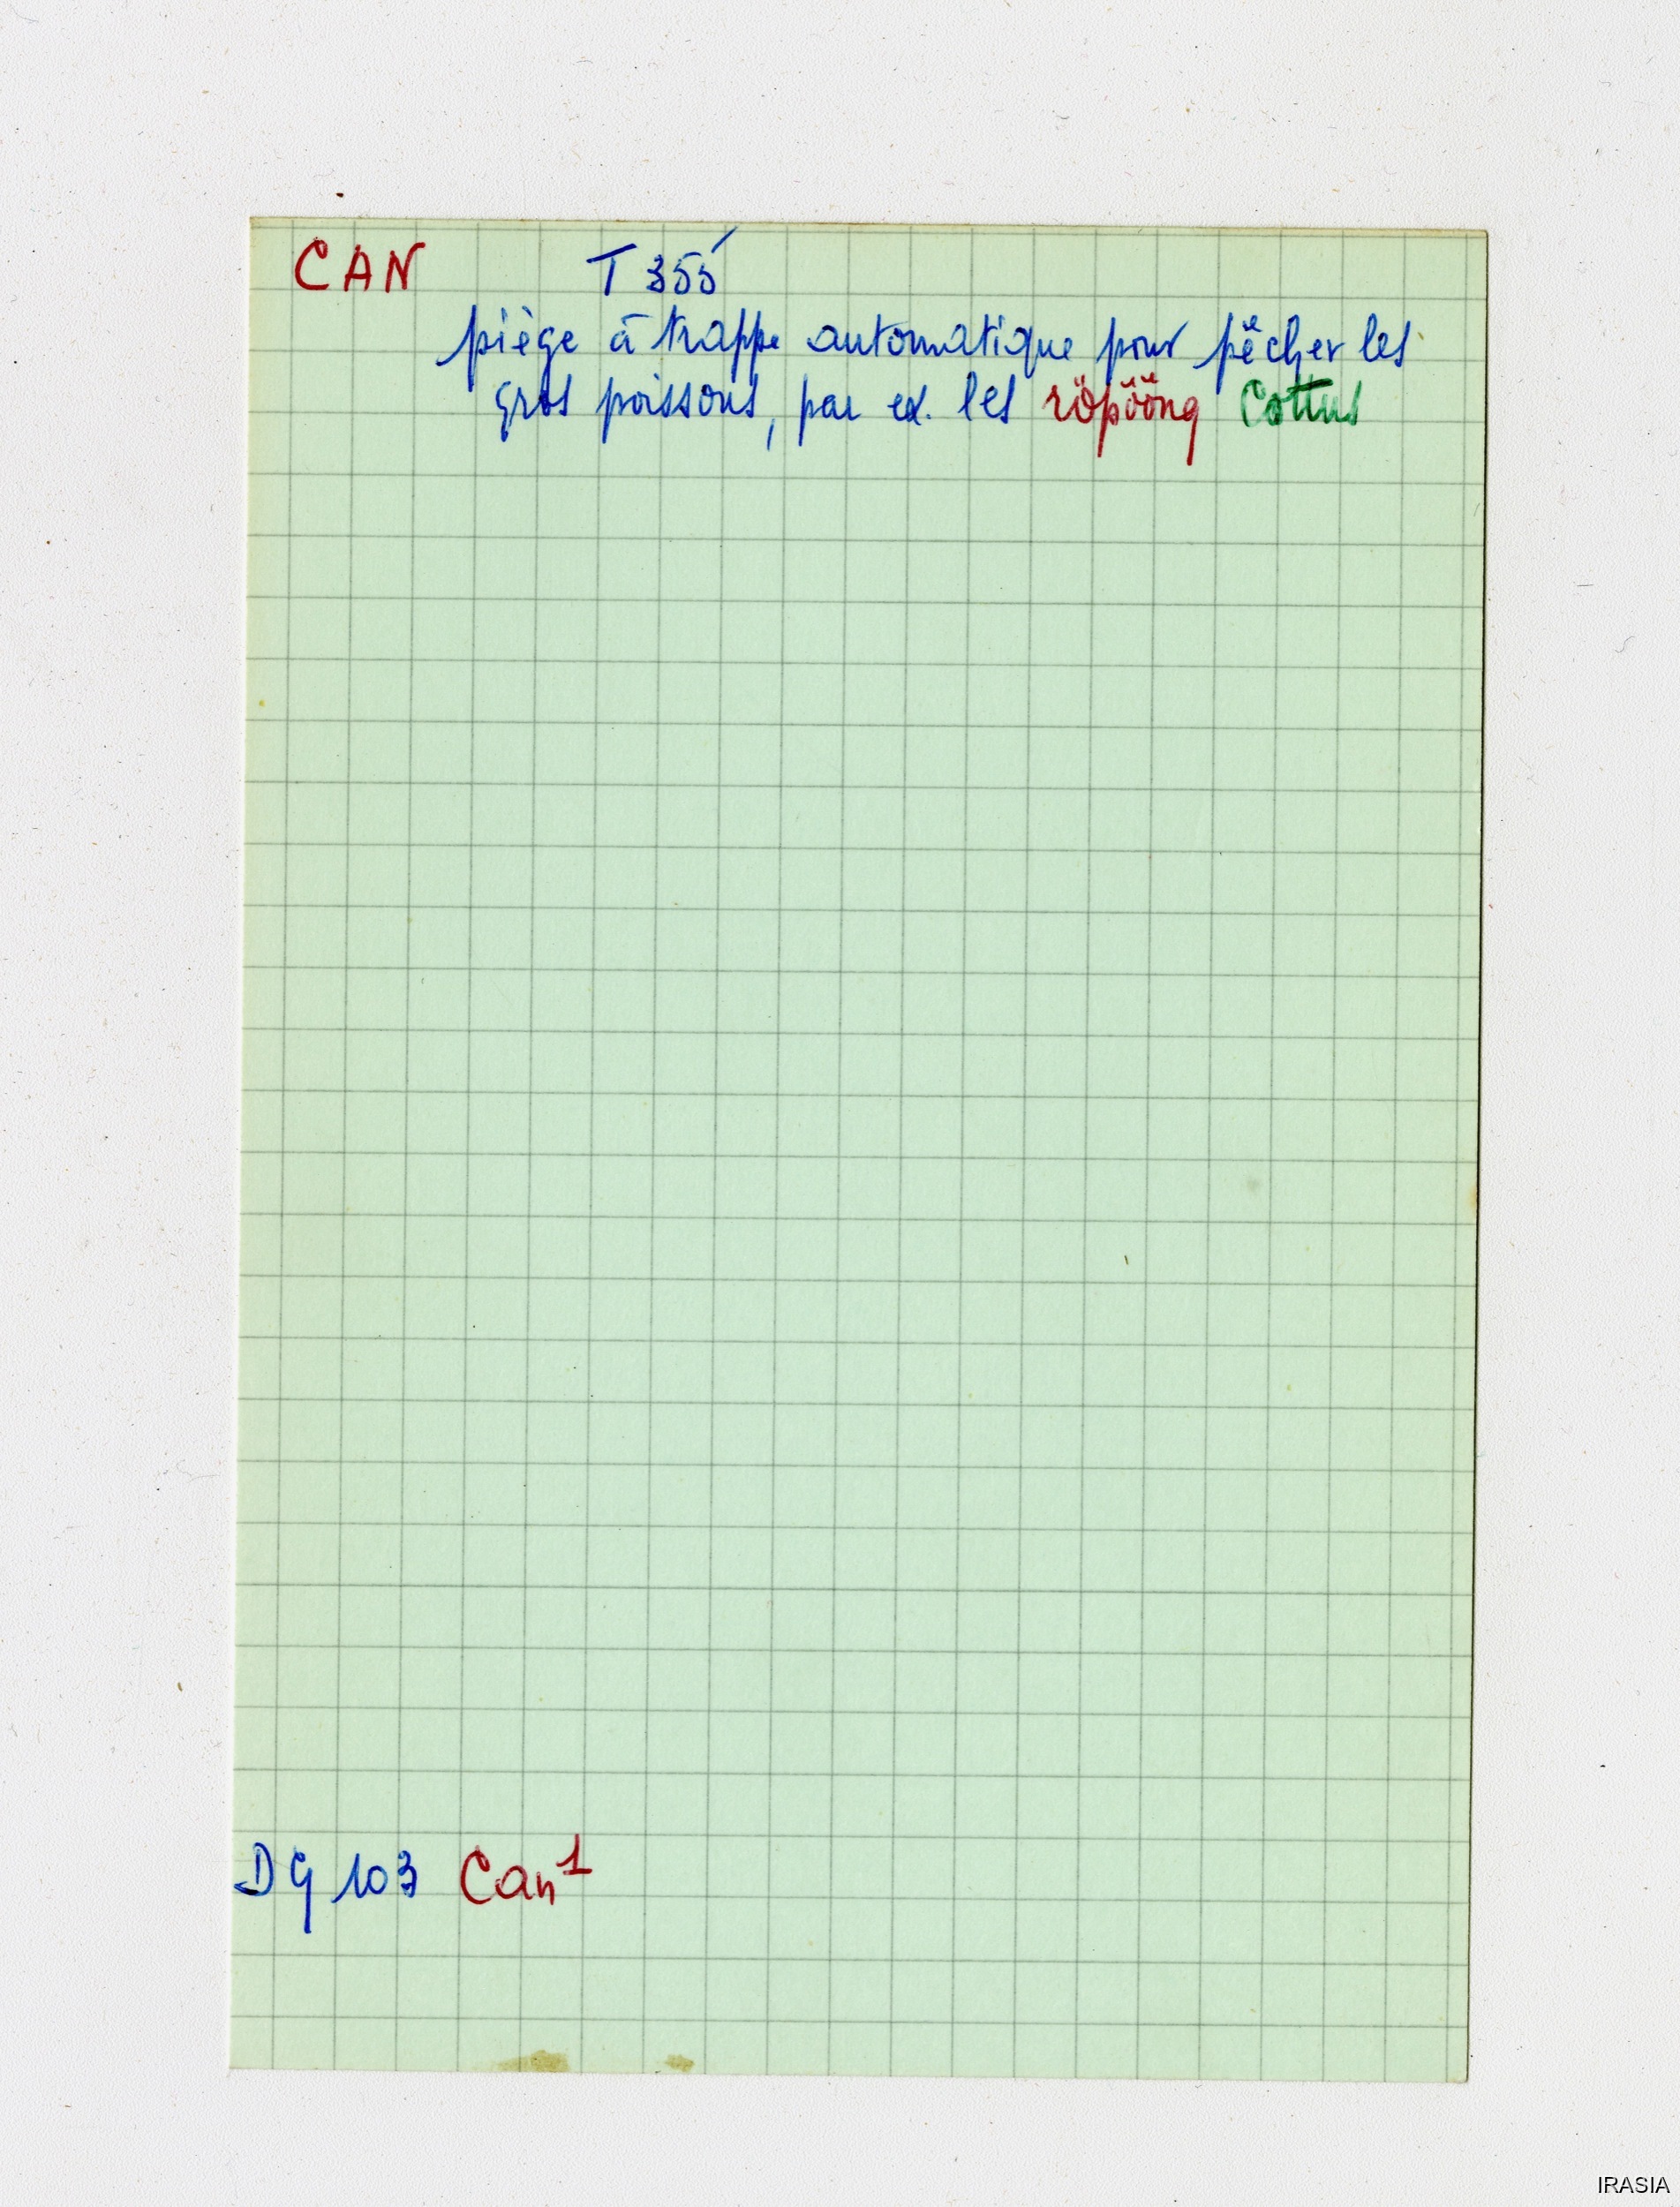 CAN T 355
piège à trappe automatique pour pêcher les
gros poissons, par ex. les röpööng Cottus
DG 103 Can¹
IRASIA